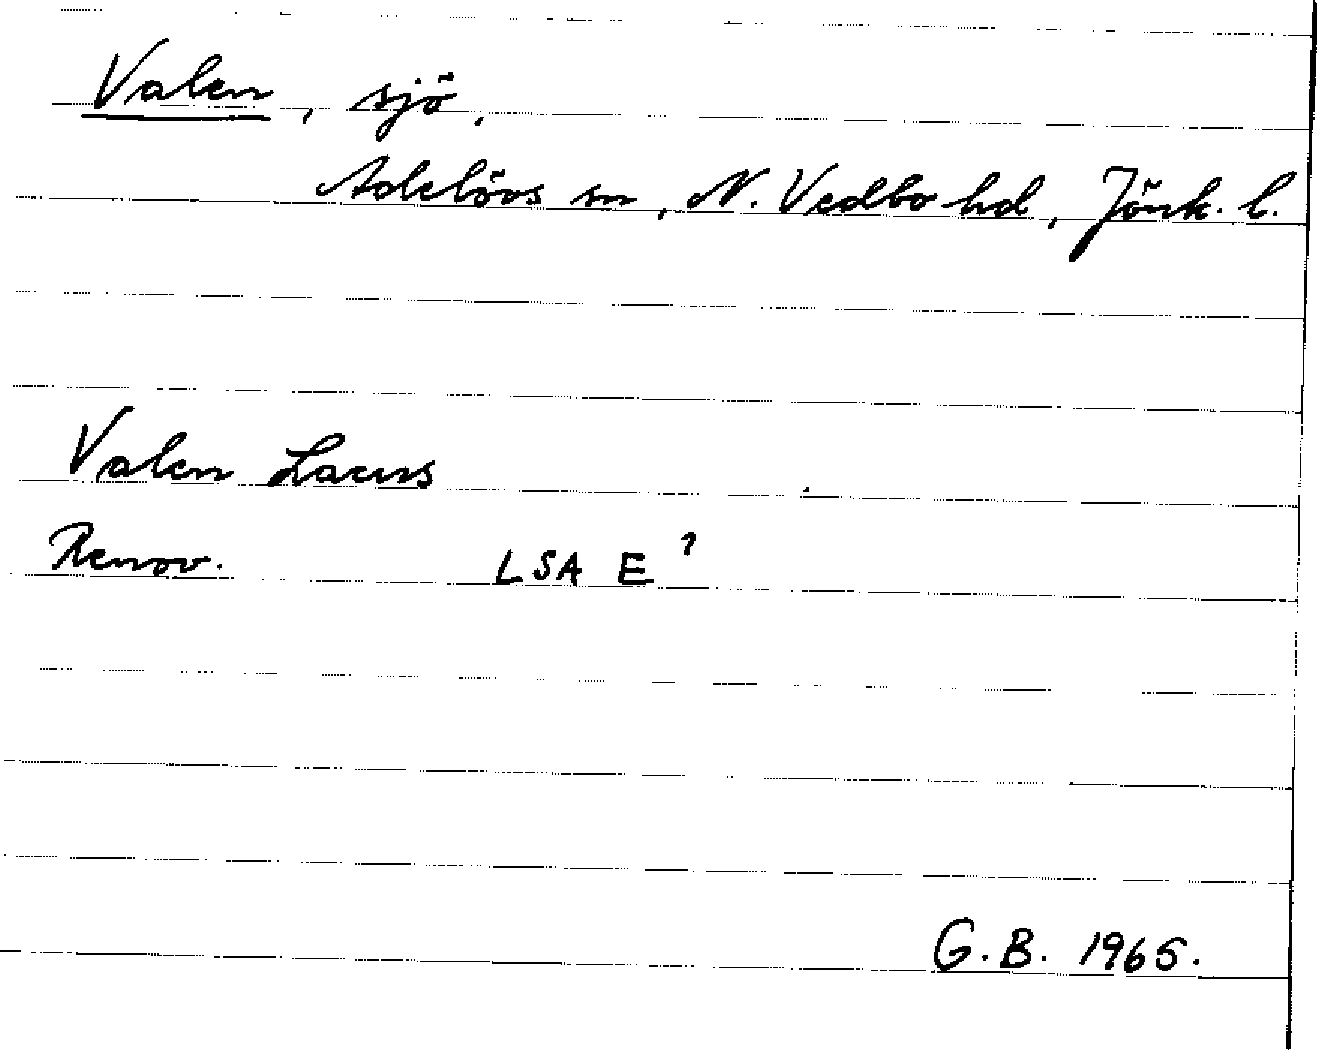 Valen, sjö,
Adelövs sn, N. Vedbo hd, Jönk. l.
Valen Lacus
Renov. LSA E ?
G.B. 1965.